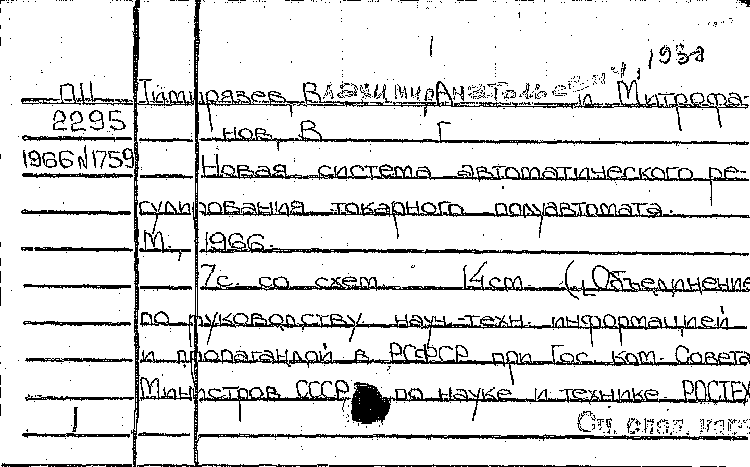 1938
ПII Тимирязев, Владимир Анатольевич, и Митрофа-
2295 нов, В Г
1966 N 1759 Новая система автоматического ре-
гулирования токарного полуавтомата.
М., 1966.
7с. со схем. 14см. (Объединение
по руководству науч.-техн. информацией
и пропагандой в РСФСР при Гос. ком. Совета
Министров СССР по науке и технике. РОСТЕХ
1 См. след. карт